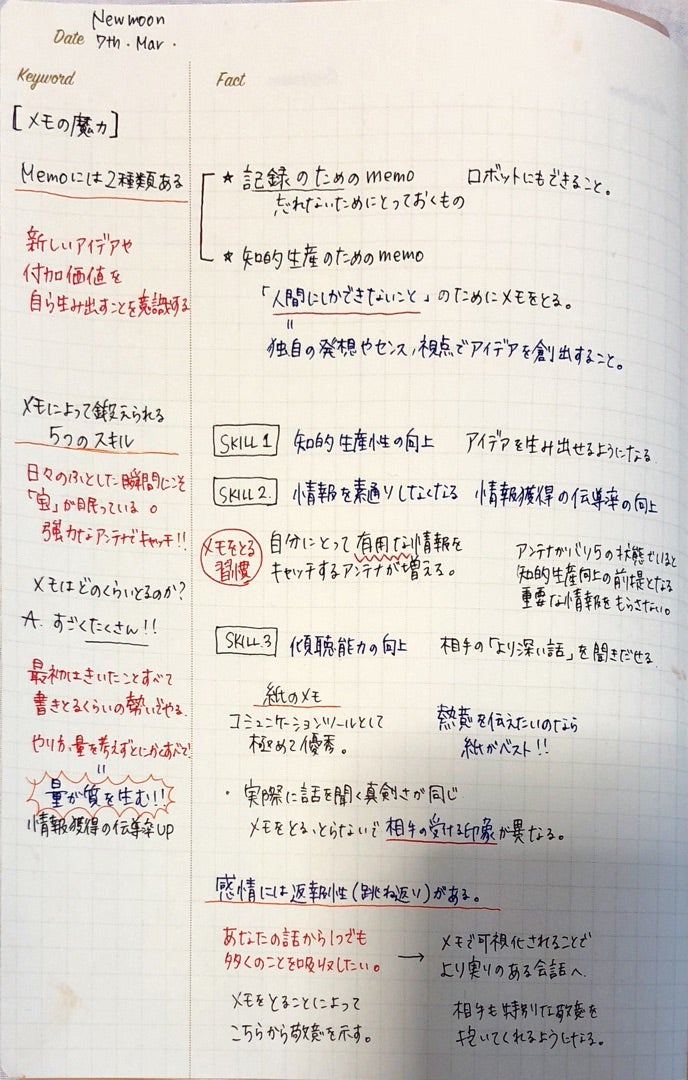 Newmoon
Date 7th. Mar.
Keyword
Fact
[メモの魔力]
Memoには2種類ある
新しいアイデアや
付加価値を
自ら生み出すことを意識する
★ 記録のためのmemo ロボットにもできること。
忘れないためにとっておくもの
★ 知的生産のためのmemo
「人間にしかできないこと」のためにメモをとる。
=
独自の発想やセンス,視点でアイデアを創出すること。
メモによって鍛えられる
5つのスキル
日々のふとした瞬間にこそ
「宝」が眠っている。
強力なアンテナでキャッチ!!
SKILL 1 知的生産性の向上 アイデアを生み出せるようになる
SKILL 2. 情報を素通りしなくなる 情報獲得の伝導率の向上
メモをとる
習慣
自分にとって有用な情報を
キャッチするアンテナが増える。
アンテナがバリ5の状態でいると
知的生産向上の前提となる
重要な情報をもらさない。
メモはどのくらいとるのか?
A. すごくたくさん!!
最初はきいたことすべて
書きとるくらいの勢いでやる.
やり方,量を考えずとにかくすべて!
=
量が質を生む!!
情報獲得の伝導率UP
SKILL.3 傾聴能力の向上 相手の「より深い話」を聞きだせる
紙のメモ
コミュニケーションツールとして
極めて優秀。
熱意を伝えたいのなら
紙がベスト!!
・実際に話を聞く真剣さが同じ
メモをとる,とらないで相手の受ける印象が異なる。
感情には返報性(跳ね返り)がある。
あなたの話から1つでも
多くのことを吸収したい。
→ メモで可視化されることで
より実りのある会話へ.
メモをとることによって
こちらから敬意を示す。
相手も特別な敬意を
抱いてくれるようになる。